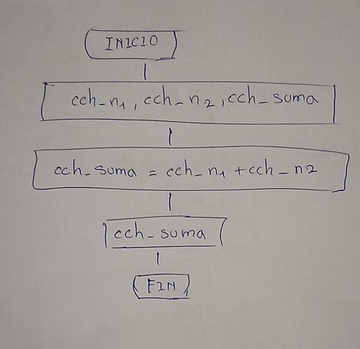 INICIO
cch_n1, cch_n2, cch_suma
cch_suma = cch_n1 + cch_n2
cch_suma
FIN